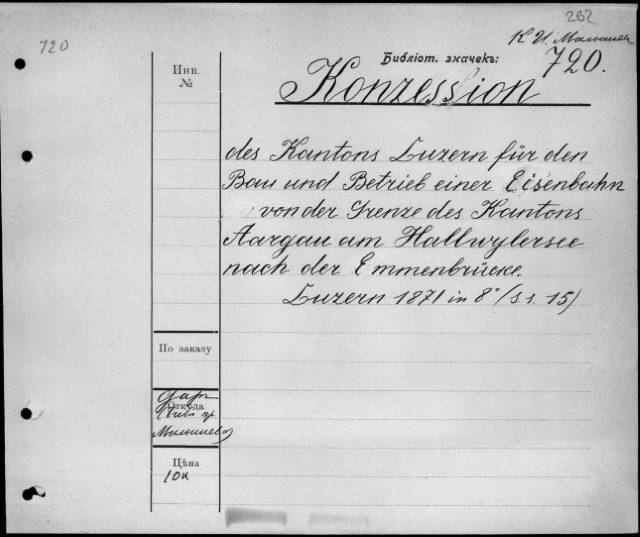 262
720
К И. Малышев
Библіот. значекъ:
720.
Инв.
№
Konzession
des Kantons Luzern für den
Bau und Betrieb einer Eisenbahn
von der Grenze des Kantons
Aargau am Hallwylersee
nach der Emmenbrücke.
Luzern 1871 in 8° (S. 1. 15)
По заказу
Откуда
даръ
Малышева
Цѣна
10к